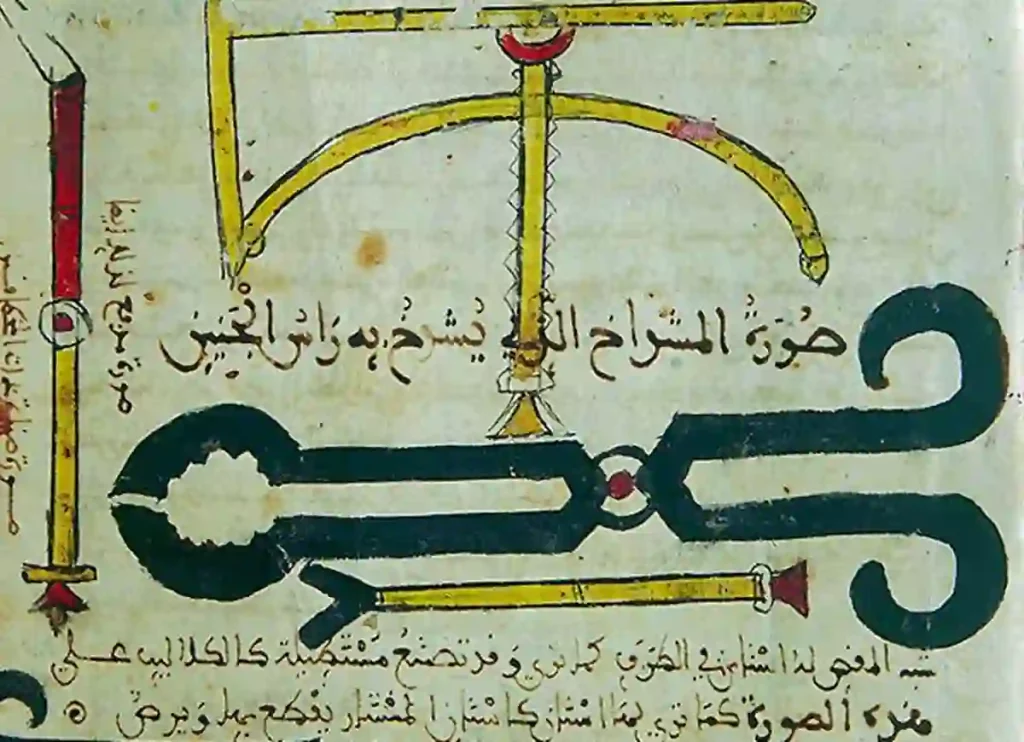 صُورَةُ المشداخ الذي يُشدخُ بِه رَاسُ الجَنِين
شبه المقص له اسنان في الطرف كما ترى وقد تصنع مستطيلة كالكلاليب على
هذه الصورة كما ترى لها اسنان كاسنان المنشار يقطع بها ويرض
صورة
صورة